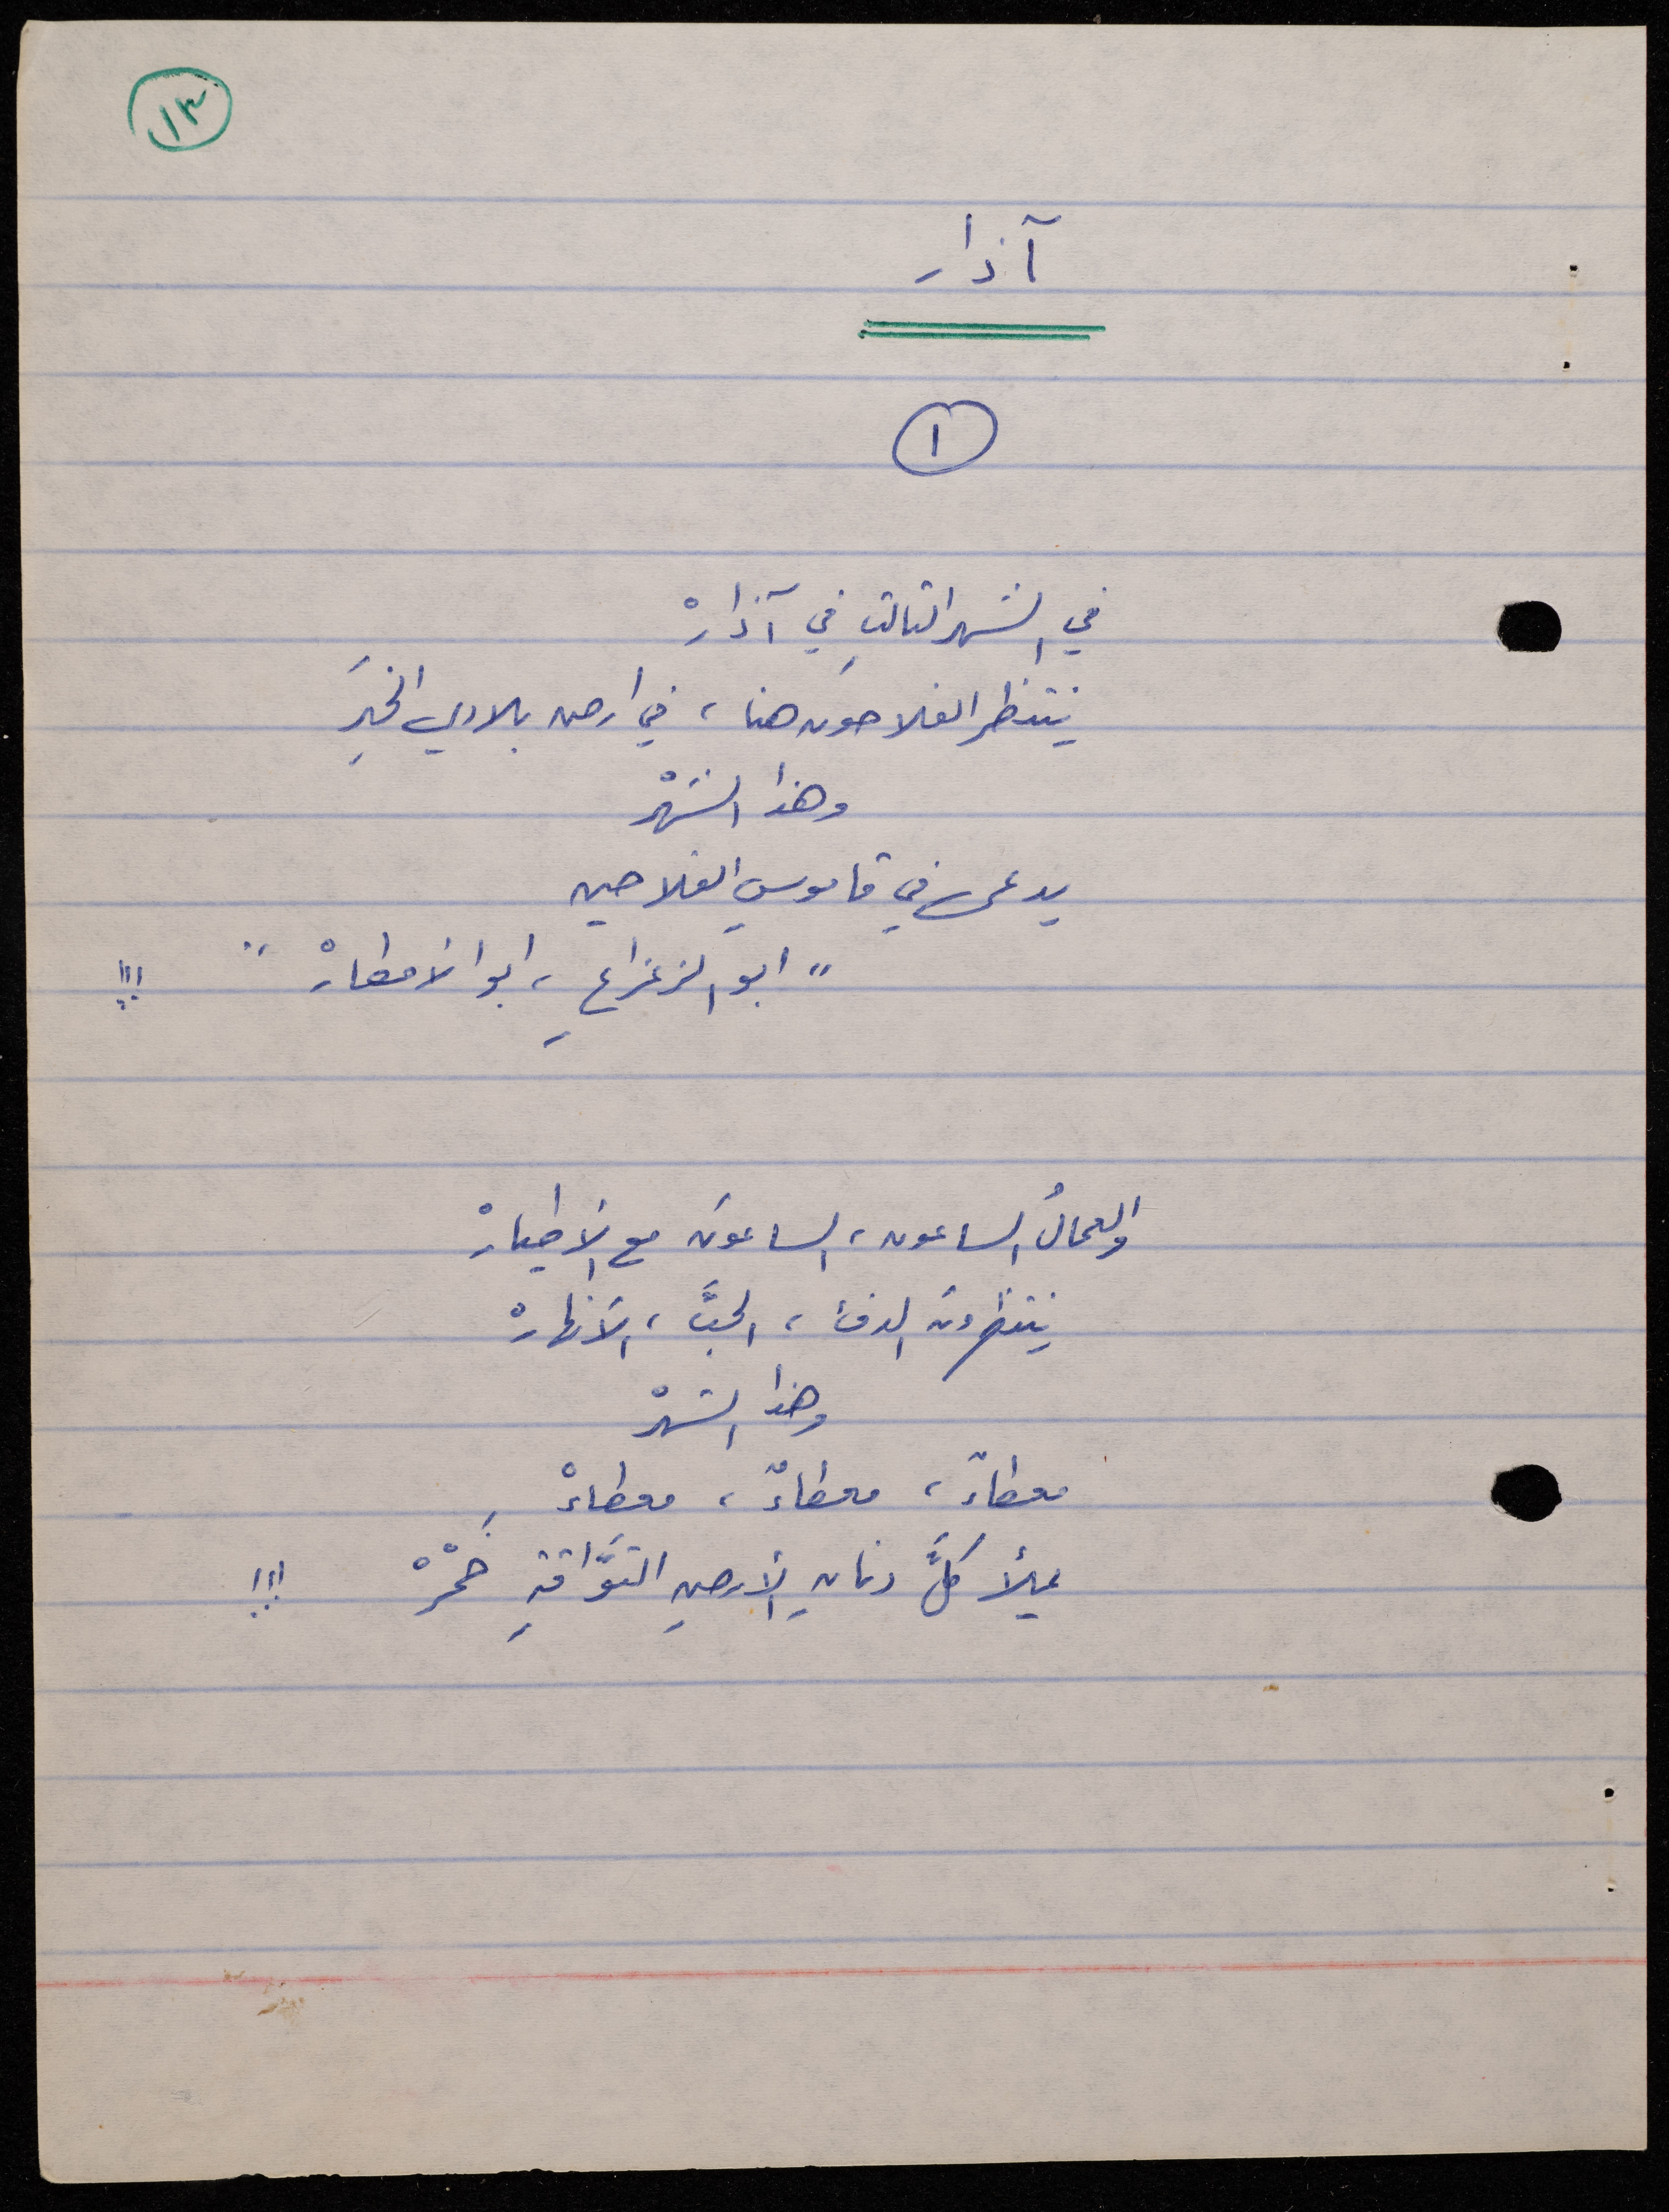 ١٣
آذار
١
في الشهر الثالثِ في آذارْ
ينتظر الفلاحونَ هنا ، في ارض بلادي الخيرَ
وهذا الشهْرْ
يدعى في قاموسِ الفلاحين
" ابو الزعزاعِ ، ابو الامطارْ " !!!
والعمالُ الساعون ، الساعونَ مع الاطيارْ
ينتظرونَ الدفءَ ، الحبَّ ، الأنهارْ
وهذا الشهْرْ
معطاءٌ ، معطاءٌ ، معطاءْ
يملأ كلَّ دنانِ الأرضِ التوَّاقةِ خَمْرْ !!!